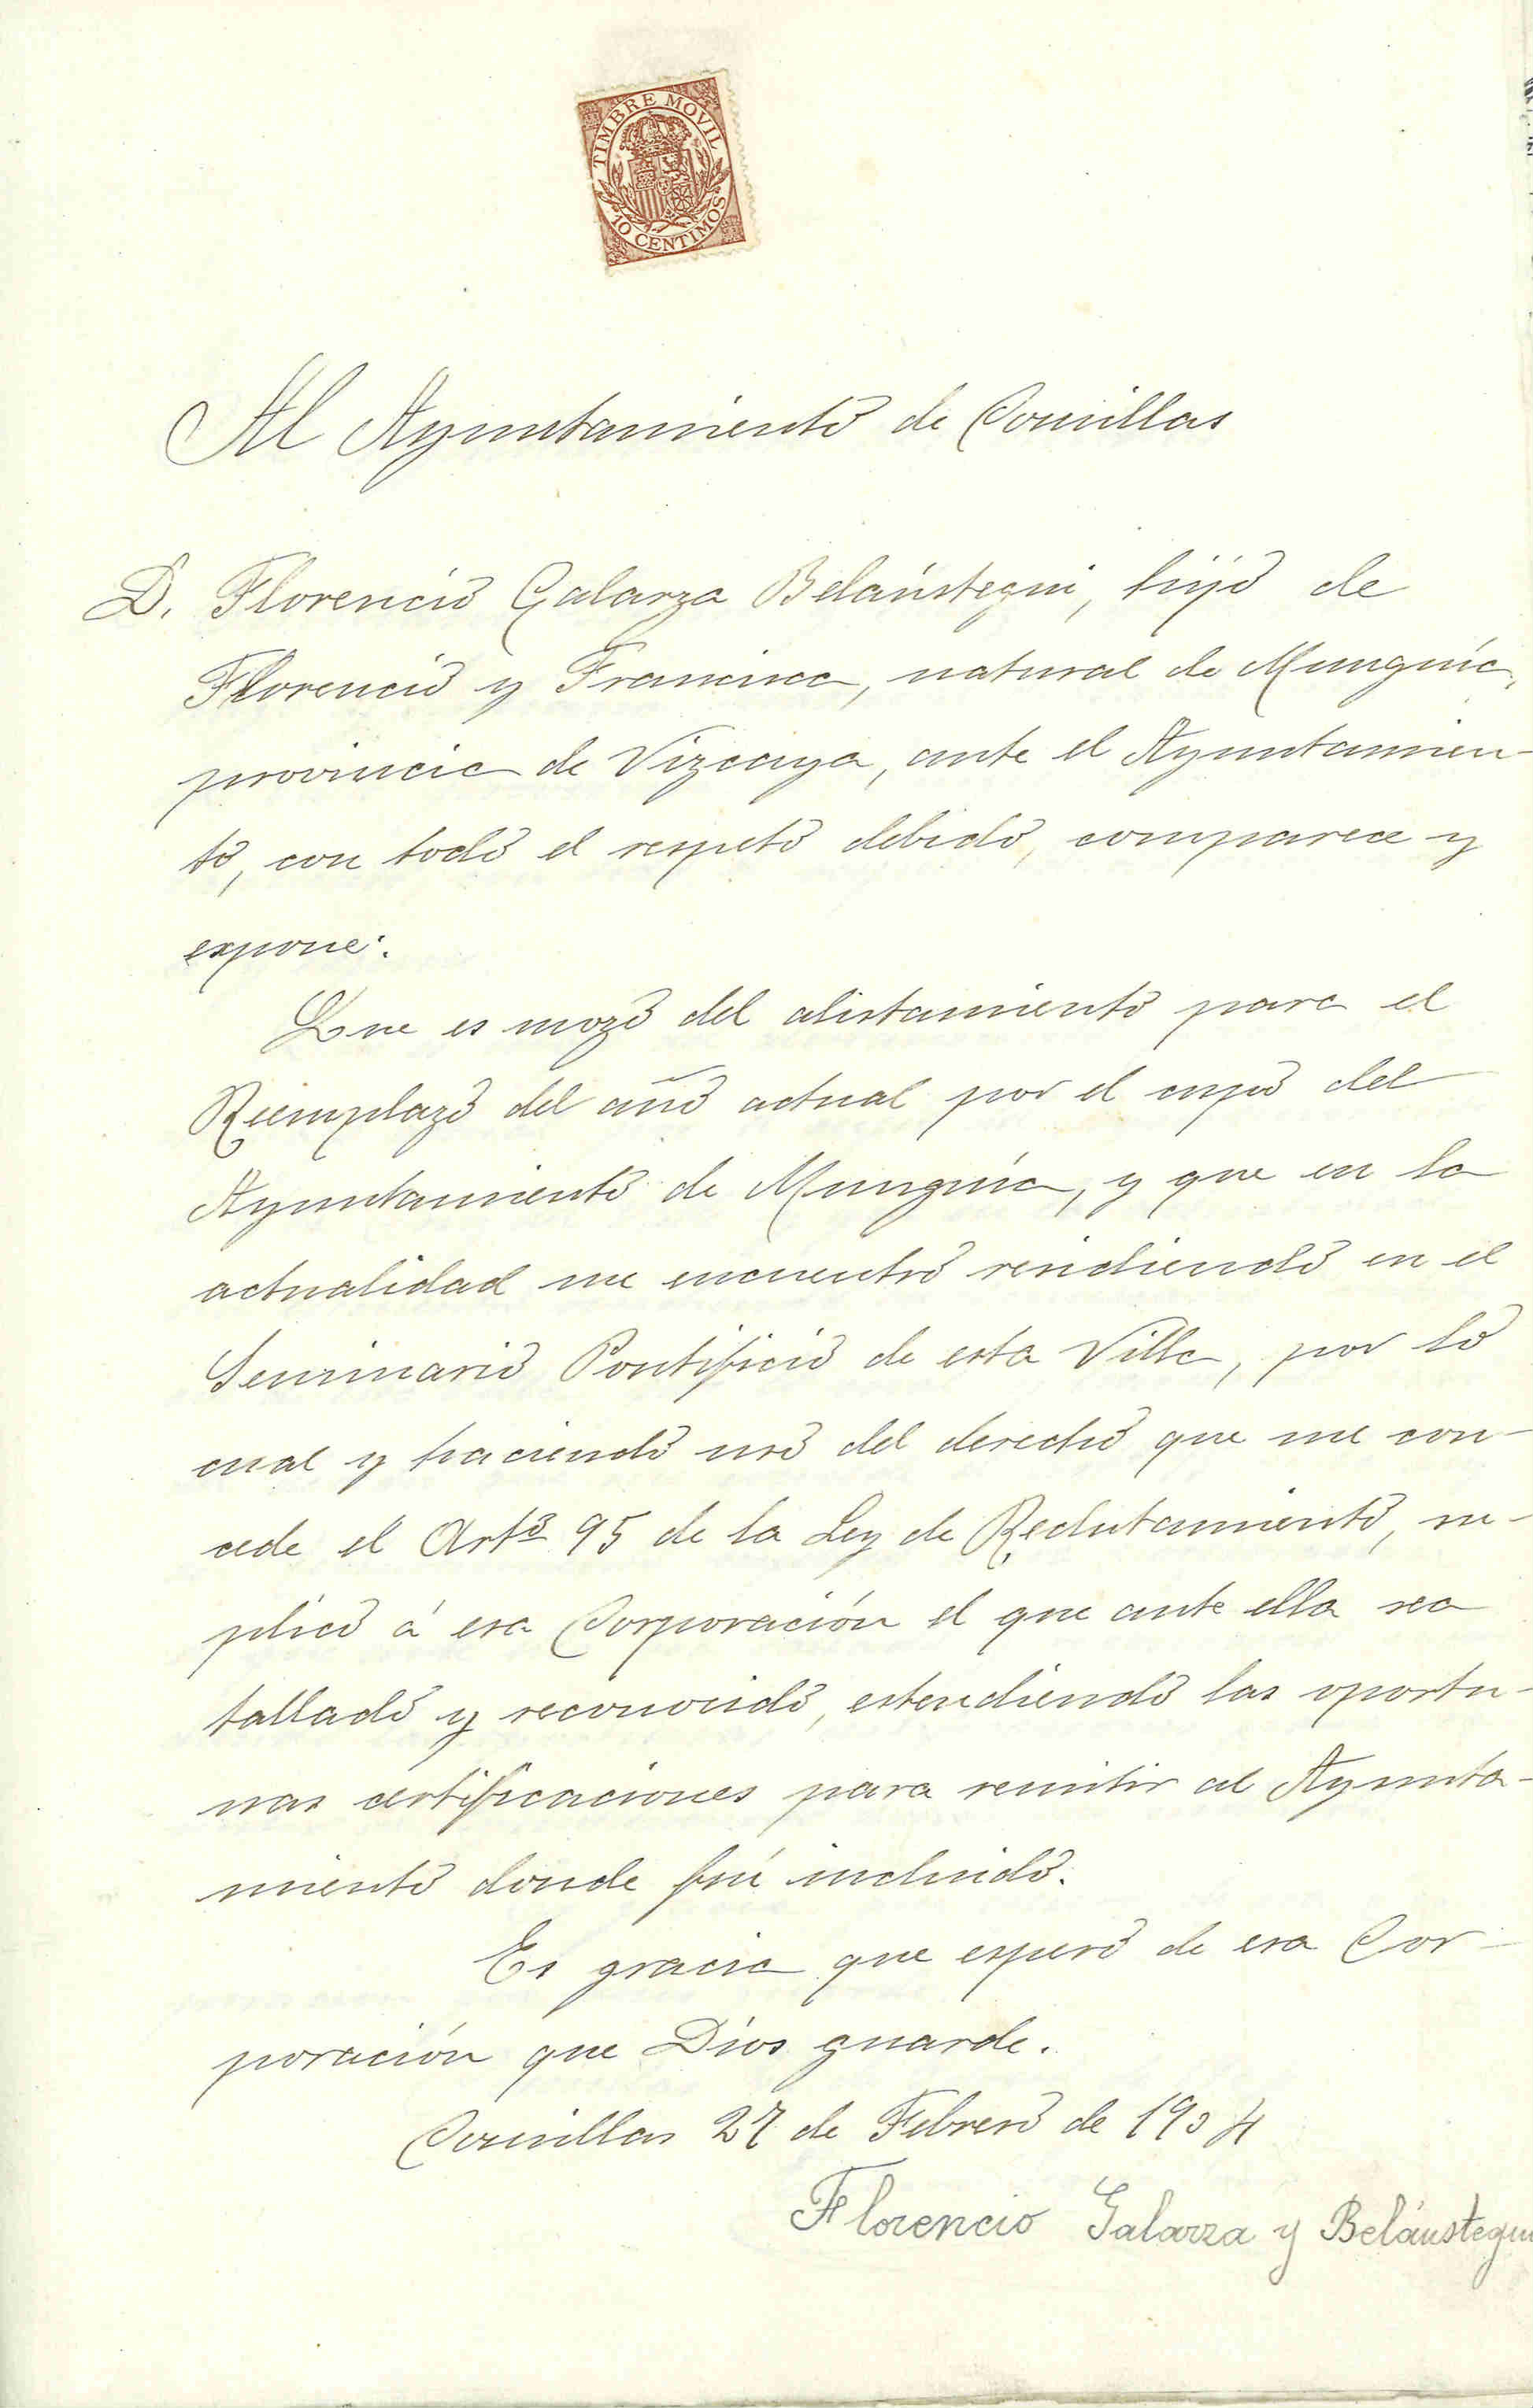 TIMBRE MOVIL
10 CENTIMOS
Al Ayuntamiento de Comillas
D. Florencio Galarza Belaústegui, hijo de
Florencio y Francisca, natural de Munguía,
provincia de Vizcaya, ante el Ayuntamien-
to, con todo el respeto debido, comparece y
expone:
Que es mozo del alistamiento para el
Reemplazo del año actual por el cupo del
Ayuntamiento de Munguía, y que en la
actualidad me encuentro residiendo en el
Seminario Pontificio de esta Villa, por lo
cual y haciendo uso del derecho que me con-
cede el Artº 95 de la Ley de Reclutamiento, su-
plico á esa Corporación el que ante ella sea
tallado y reconocido, estendiendo las oportu-
nas certificaciones para remitir al Ayunta-
miento donde fuí incluido.
Es gracia que espero de esa Cor-
poración que Dios guarde.
Comillas 27 de Febrero de 1904
Florencio Galarza y Beláustegui